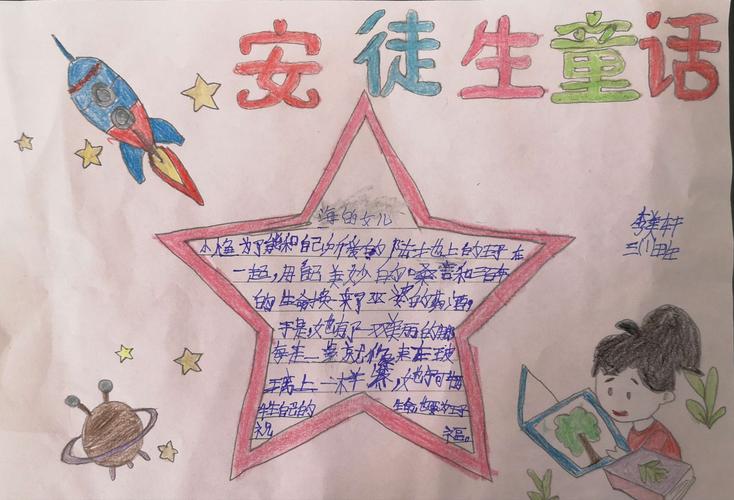 安徒生童话
海的女儿
李美轩
三(1)班
小人鱼为了能和自己心爱的陆地上的王子在
一起,用自己美妙的嗓音和三百年
的生命换来了巫婆的药酒。
于是,她有了一双美丽的
每走一步就像走在玻
璃上一样,她宁可牺
牲自己的 生命也要为王子
祝 福。